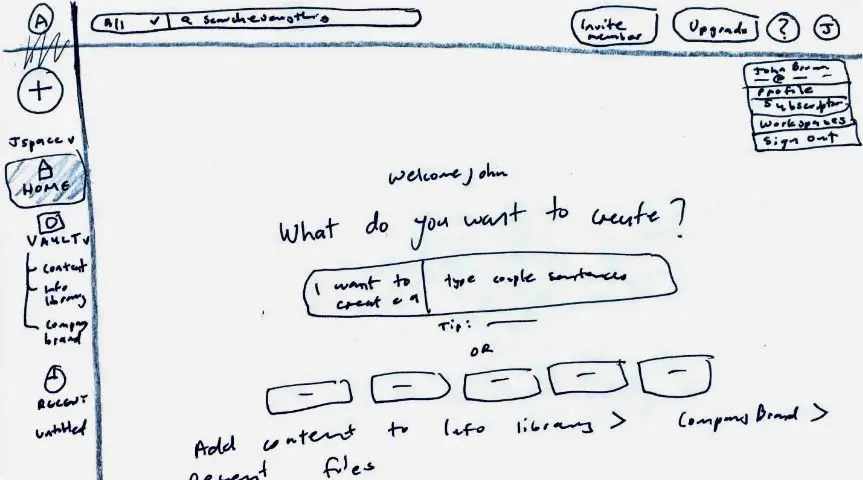 A
All
Search everything
Invite
member
Upgrade
?
J
John Brown
Profile
Subscription
Workspaces
Sign out
+
Jspace
HOME
VAULT
Content
Info
library
Company
brand
RECENT
untitled
Welcome John
What do you want to create?
I want to
create a
type couple sentences
Tip:
OR
Add content to Info library >
Company Brand >
Recent files